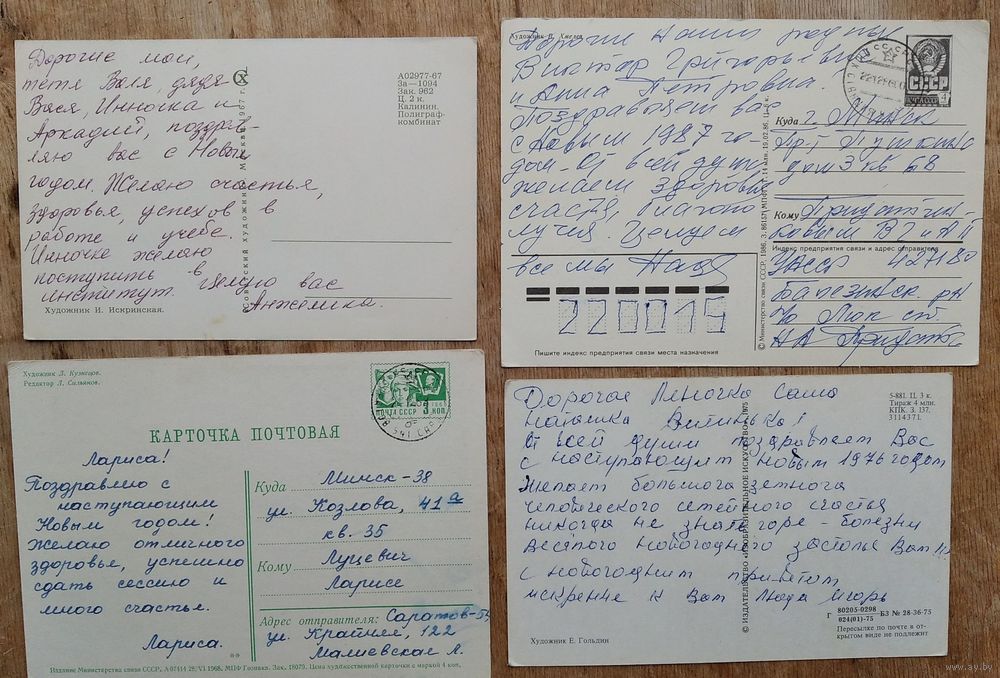 Дорогие мои,
тетя Валя, дядя
Вася, Инночка и
Аркадий, поздрав-
ляю вас с Новым
годом. Желаю счастья,
здоровья, успехов в
работе и учебе.
Инночке желаю
поступить в
институт. Целую вас
Анжелика.
Художник И. Искринская.
Советский художник Москва 1967 г.
А02977-67
За — 1094
Зак. 962
Ц. 2 к.
Калинин.
Полиграф-
комбинат
Художник В. Хмелев
Дорогие Наши родные
Виктор Григорьевич
и Анна Петровна.
Поздравляем вас
с Новым 1987 го-
дом. От всей души
желаем здоровья
счастья, благопо
лучия. Целуем
все мы
СССР
ПОЧТА СССР
Куда г. Минск
Пр-т Пушкина
дом 3 кв 68
Кому
Индекс предприятия связи и адрес отправителя
УАССР 427180
Балезинск. рн
220015
Пишите индекс предприятия связи места назначения
© Министерство связи СССР, 1986.
Художник Л. Кузнецов.
Редактор Л. Сильянов.
ПОЧТА СССР 3 КОП.
КАРТОЧКА ПОЧТОВАЯ
Лариса!
Поздравляю с
наступающим
Новым годом!
Желаю отличного
здоровья, успешно
сдать сессию и
много счастья.
Лариса.
Куда Минск-38
ул. Козлова, 41а
кв. 35
Кому Луцевич
Ларисе
Адрес отправителя: Саратов-5
ул. Крайняя, 122
Малиевская Л.
Издание Министерства связи СССР. А 07414 28/VI 1968. МПФ Гознака. Зак. 18079. Цена художественной карточки с маркой 4 коп.
Дорогая Леночка Саша
Наташка Виталька!
От всей души поздравляем Вас
с наступающим Новым 1976 годом
Желаем большого земного
человеческого семейного счастья
никогда не знать горе - болезни
Веселого новогоднего застолье Вам
с новогодним приветом
искренне к Вам Люда Игорь
Художник Е. Гольдин
© ИЗДАТЕЛЬСТВО «ИЗОБРАЗИТЕЛЬНОЕ ИСКУССТВО» 1975
5-881. Ц. 3 к.
Тираж 4 млн.
КПК. З. 137.
3114371.
Г 80205-0298
024(01)-75 БЗ № 28-36-75
Пересылке по почте в от-
крытом виде не подлежит
www.ay.by